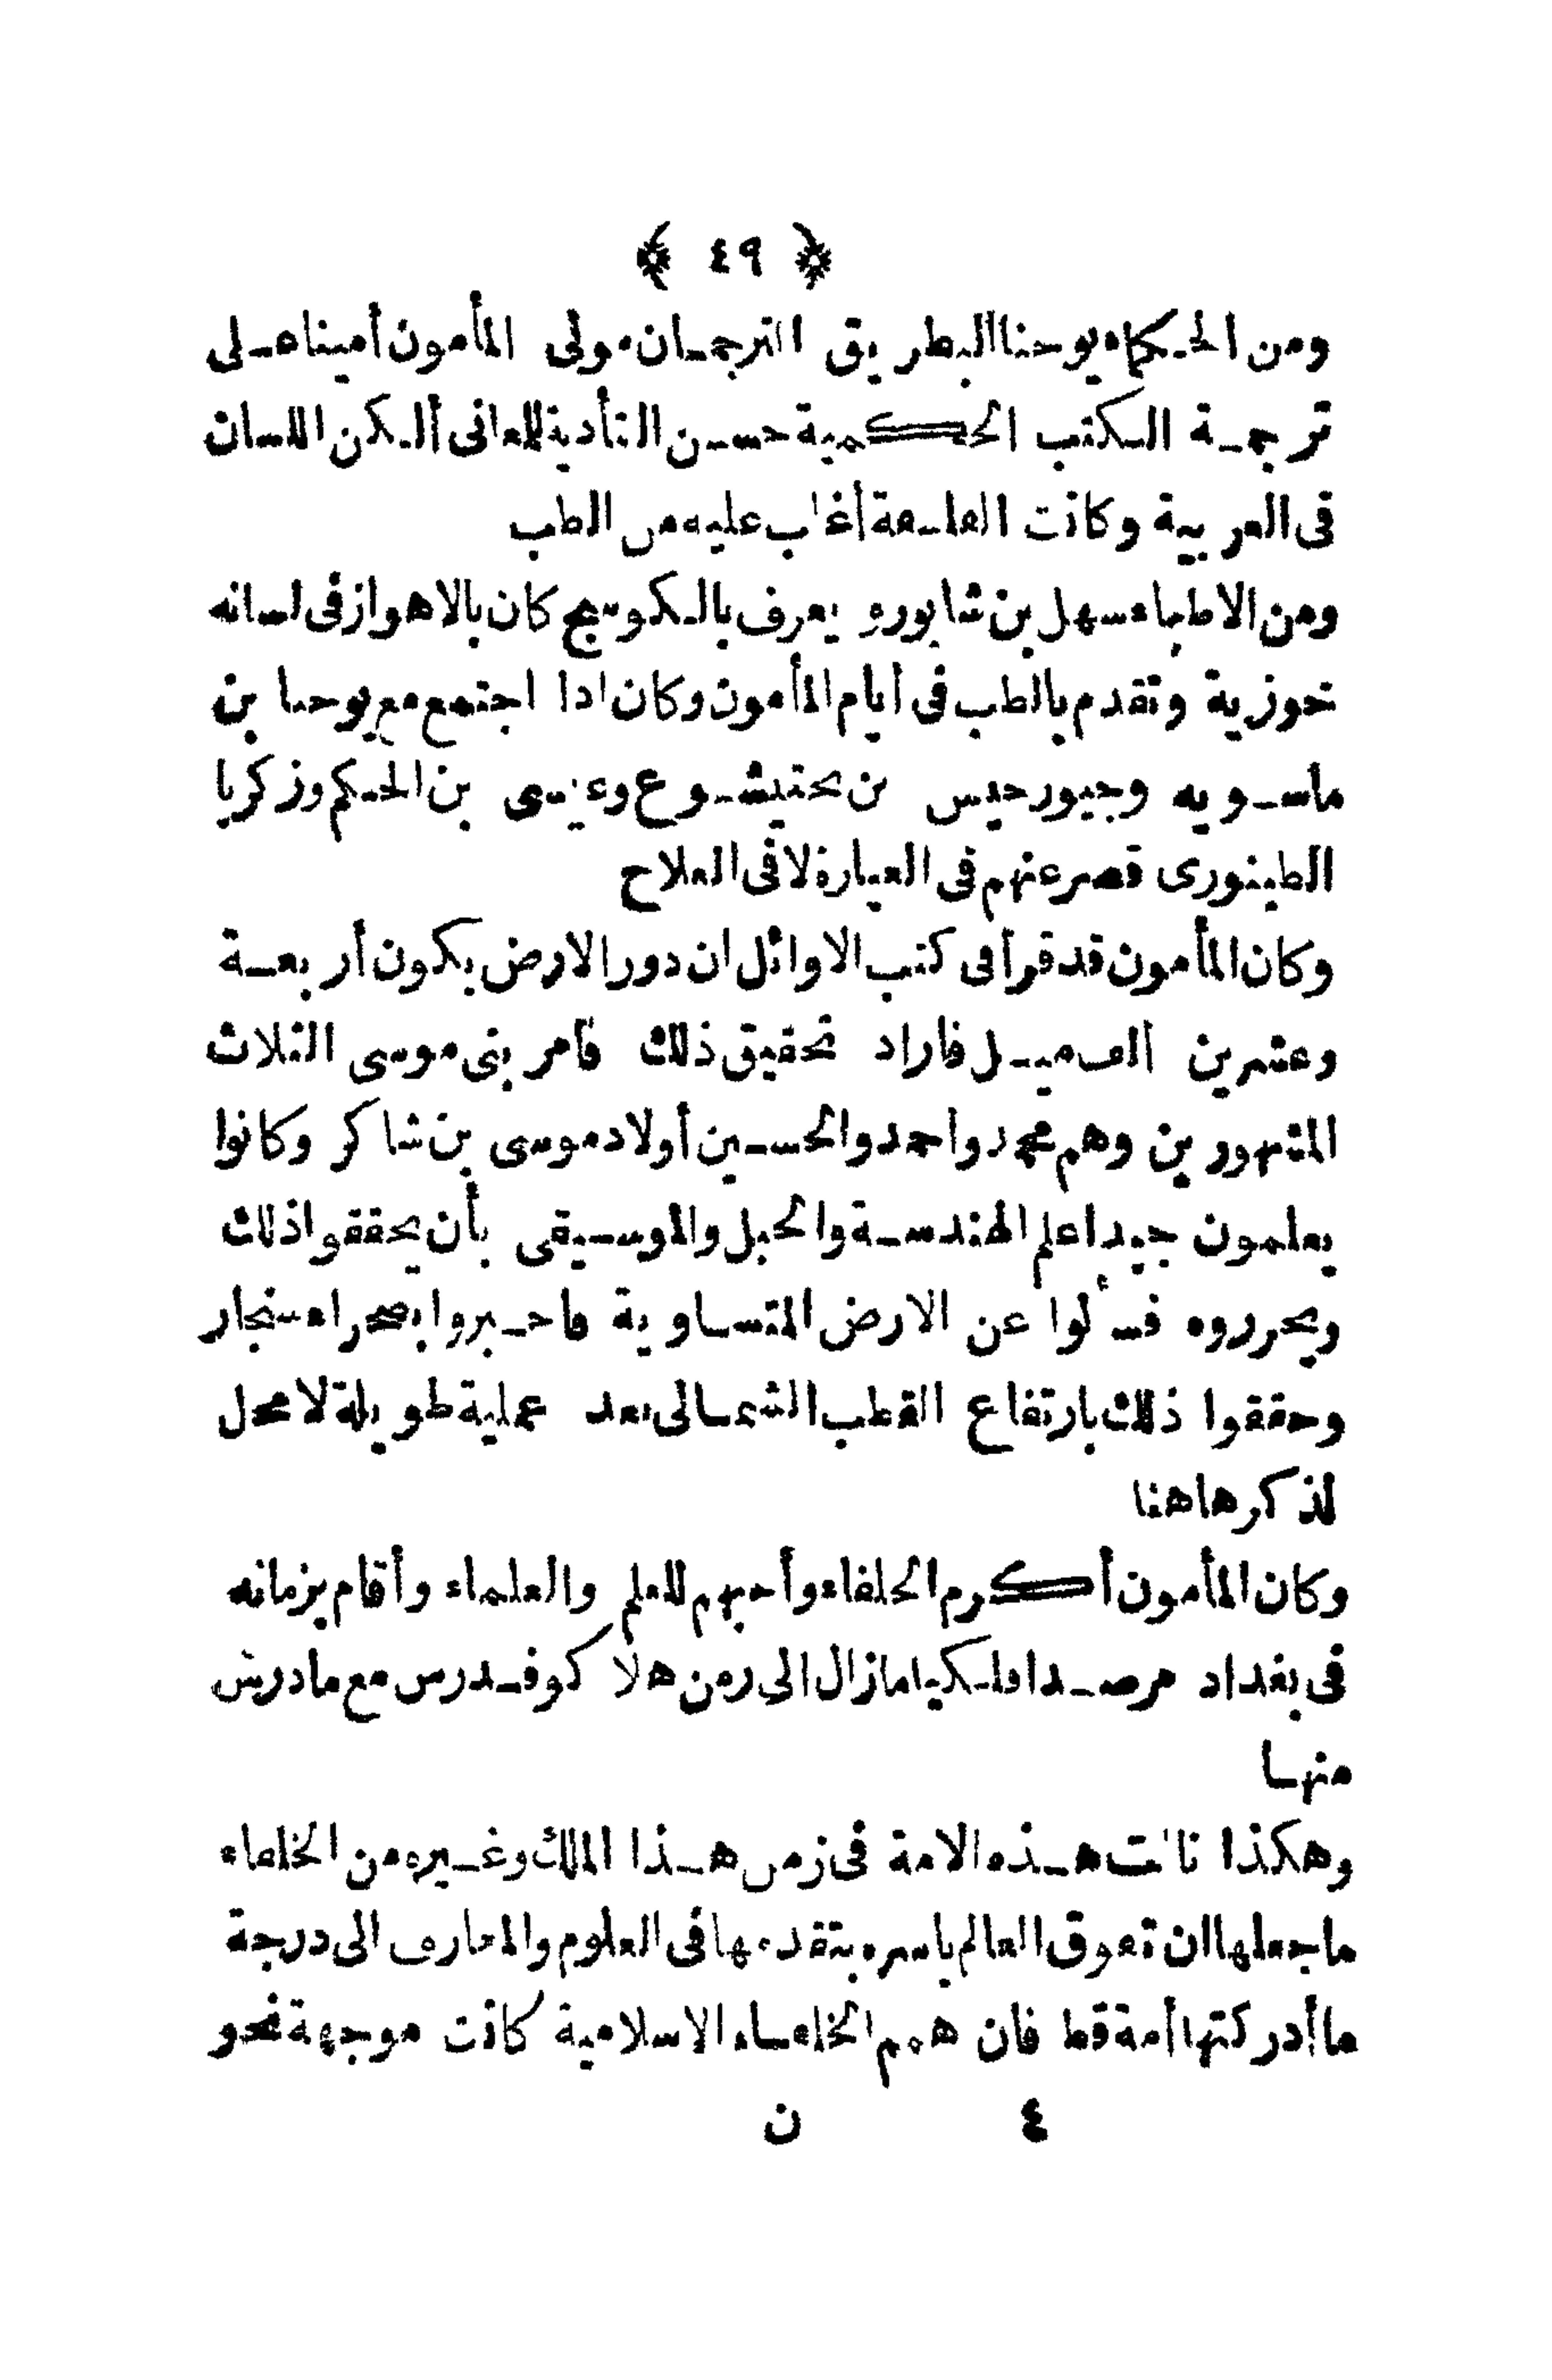 ﴿ ٤٩ ﴾
ومن الحكماء يوحنا البطريق الترجمان مولى المأمون أمينا على
ترجمة الكتب الحكمية حسن التأدية للمعانى ألكن اللسان
فى العربية وكانت الفلسفة أغلب عليه من الطب
ومن الاطباء سهل بن شابوره يعرف بالكوسج كان بالاهواز فى لسانه
خوزية وتقدم بالطب فى أيام المأمون وكان اذا اجتمع مع يوحنا بن
ماسويه وجيورجيس بن بختيشوع وعيسى بن الحكم وزكريا
الطيفورى قصر عنهم فى العبارة لا فى العلاج
وكان المأمون قد قرأ فى كتب الاوائل ان دور الارض يكون أربعة
وعشرين ألف ميل فاراد تحقيق ذلك فامر بنى موسى الثلاث
المشهورين وهم محمد واحمد والحسين أولاد موسى بن شاكر وكانوا
يعلمون جيدا علم الهندسة والحيل والموسيقى بأن يحققوا ذلك
ويحرروه فسألوا عن الارض المتساوية فاخبروا بصحراء سنجار
وحققوا ذلك بارتفاع القطب الشمالى بعد عملية طويلة لا محل
لذكرها هنا
وكان المأمون أكرم الخلفاء وأحبهم للعلم والعلماء وأقام بزمانه
فى بغداد مرصدا فلكيا مازال الى زمن هلاكو فدرس مع ما درس
منها
وهكذا نالت هذه الامة فى زمن هذا الملك وغيره من الخلفاء
ما جعلها ان تفوق العالم باسره بتقدمها فى العلوم والمعارف الى درجة
ما أدركتها أمة قط فان همم الخلفاء الاسلامية كانت موجهة نحو
٤ ن